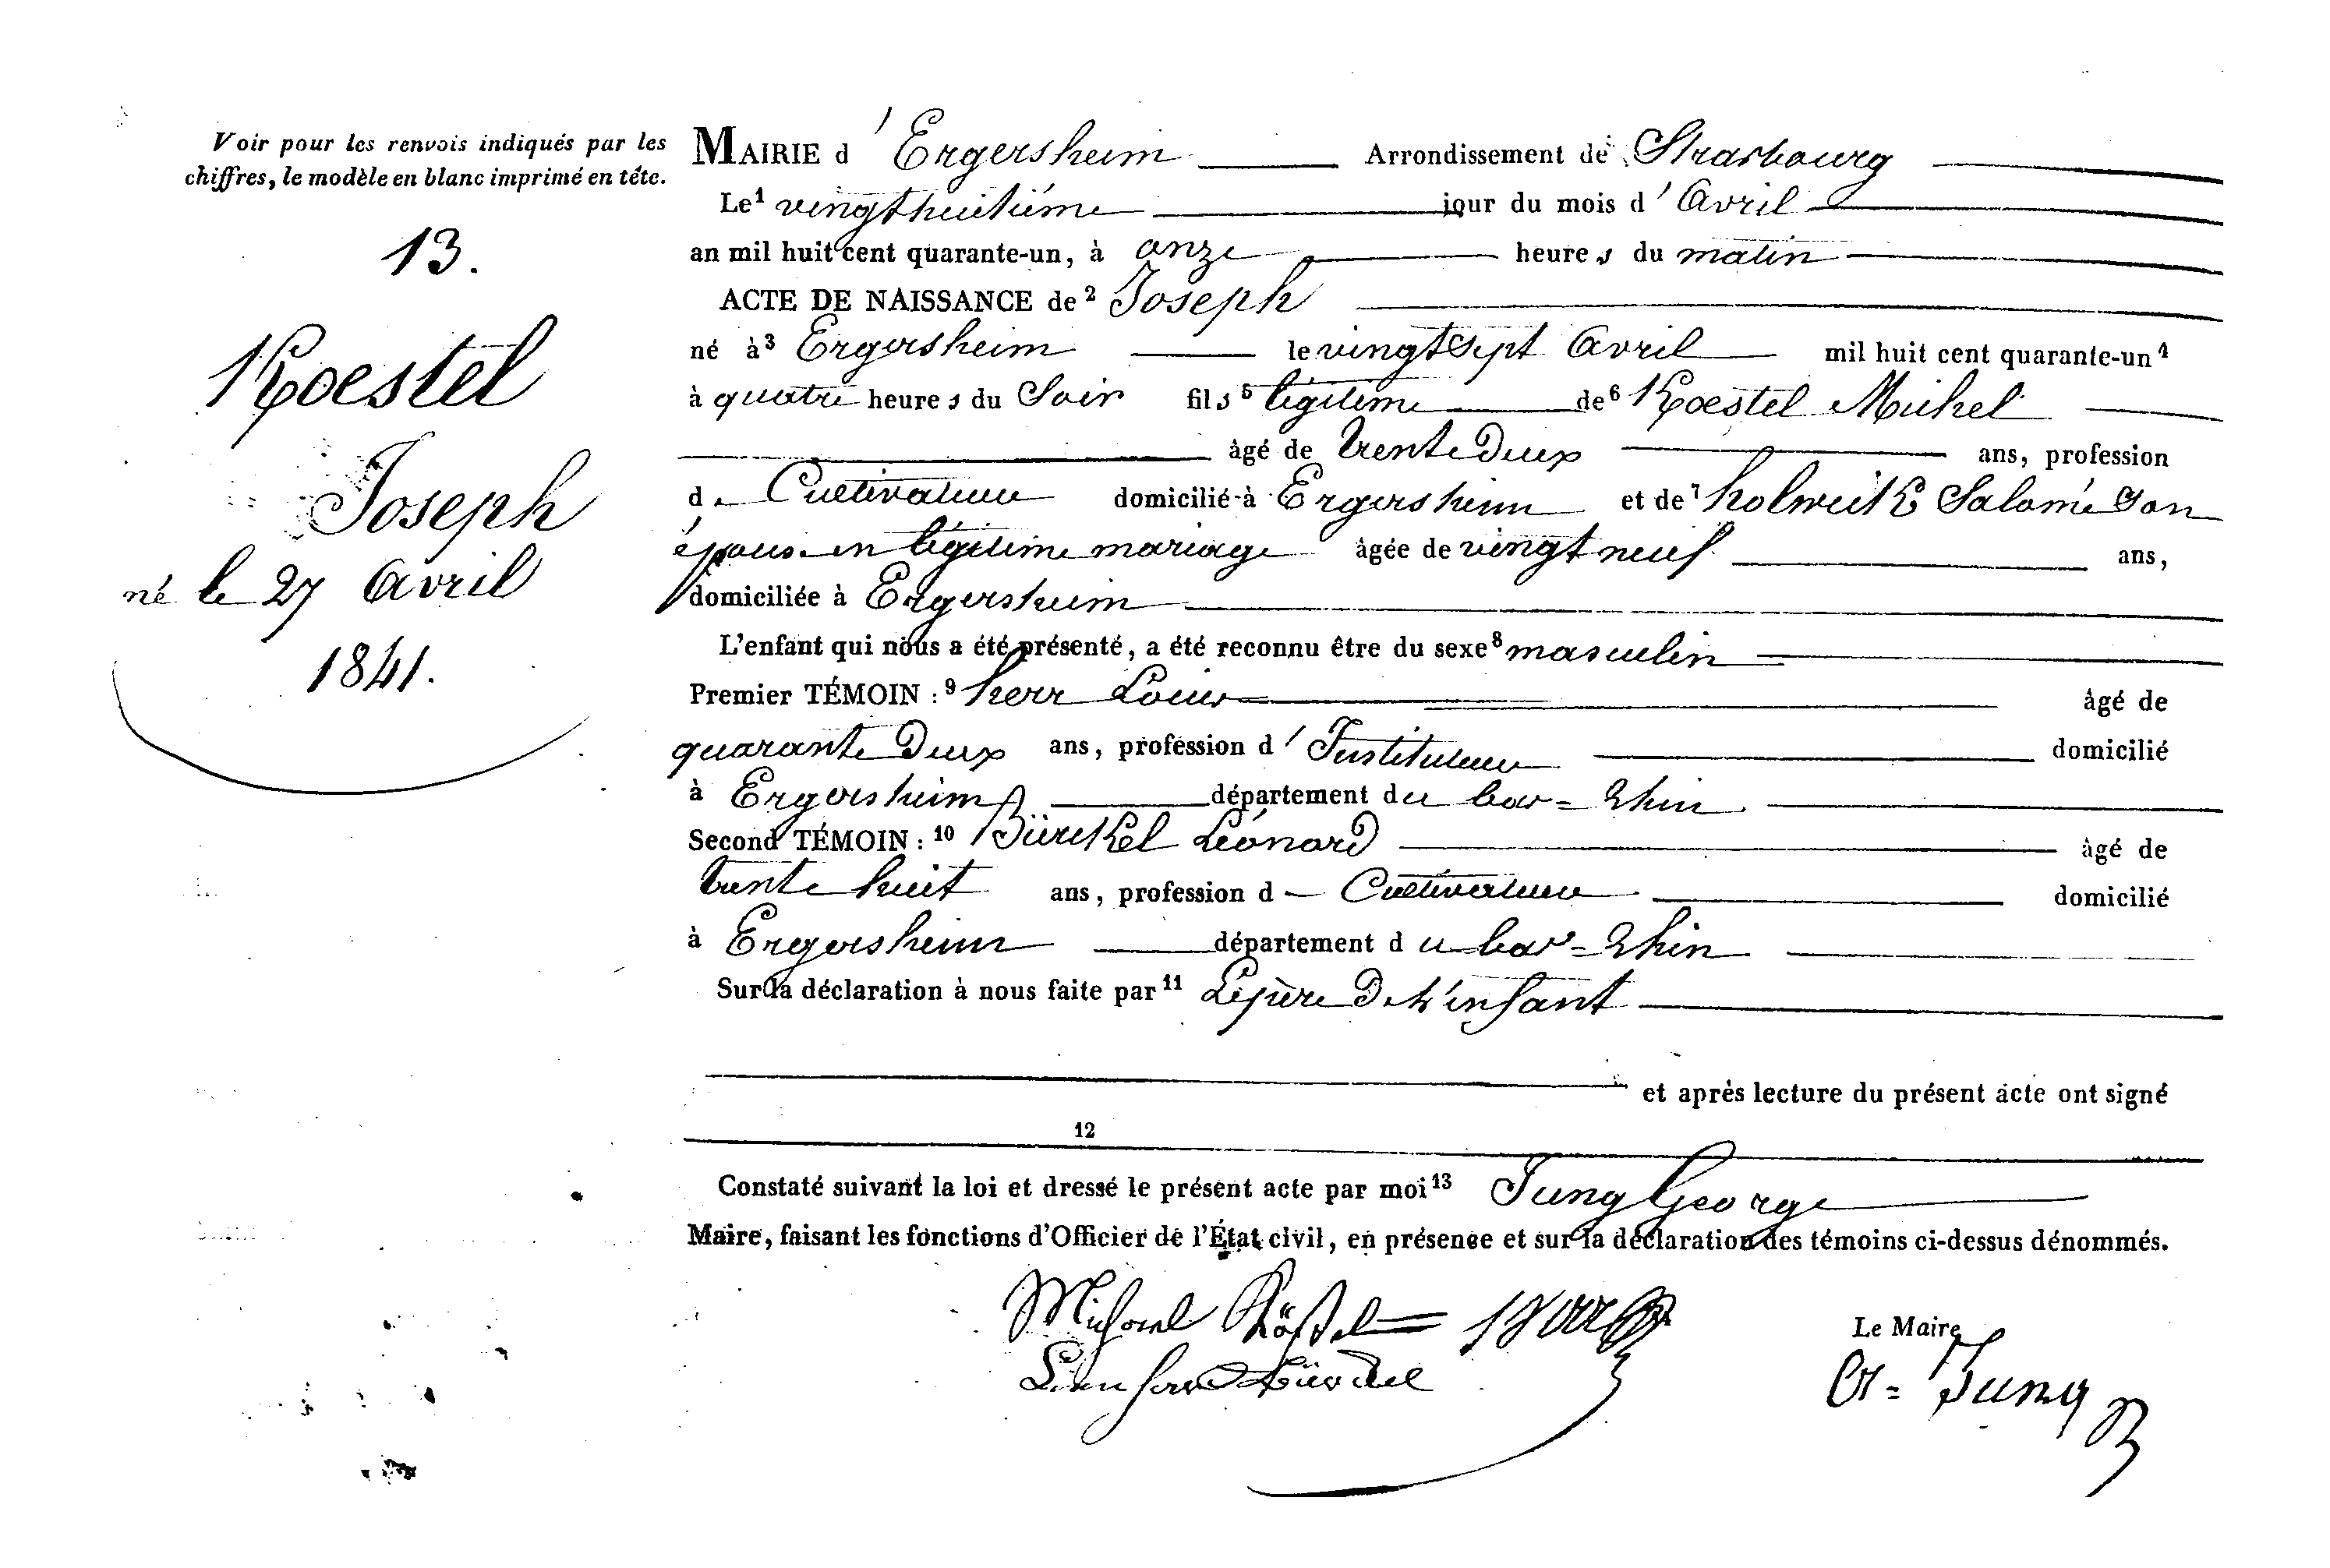 Voir pour les renvois indiqués par les
chiffres, le modèle en blanc imprimé en tête.
13.
Koestel
Joseph
né le 27 Avril
1841.
MAIRIE d'Ergersheim Arrondissement de Strasbourg
Le 1 vingthuitième jour du mois d'Avril
an mil huit cent quarante-un, à onze heures du matin
ACTE DE NAISSANCE de 2 Joseph
né à 3 Ergersheim le vingtsept Avril mil huit cent quarante-un 4
à quatre heures du Soir fils 5 légitime de 6 Koestel Michel
âgé de trente Deux ans, profession
d Cultivateur domicilié à Ergersheim et de 7 Salomé Son
épouse en légitime mariage âgée de vingt neuf ans,
domiciliée à Ergersheim
L'enfant qui nous a été présenté, a été reconnu être du sexe 8 masculin
Premier TÉMOIN : 9 herr Louis âgé de
quarante Deux ans, profession d'Instituteur domicilié
à Ergersheim département du bas=Rhin
Second TÉMOIN : 10 Bürckel Léonard âgé de
trente huit ans, profession d Cultivateur domicilié
à Ergersheim département du bas=Rhin
Sur la déclaration à nous faite par 11 Le père De L'enfant
et après lecture du présent acte ont signé
12
Constaté suivant la loi et dressé le présent acte par moi 13 Jung George
Maire, faisant les fonctions d'Officier de l'État civil, en présence et sur la déclaration des témoins ci-dessus dénommés.
Le Maire
G= Jung